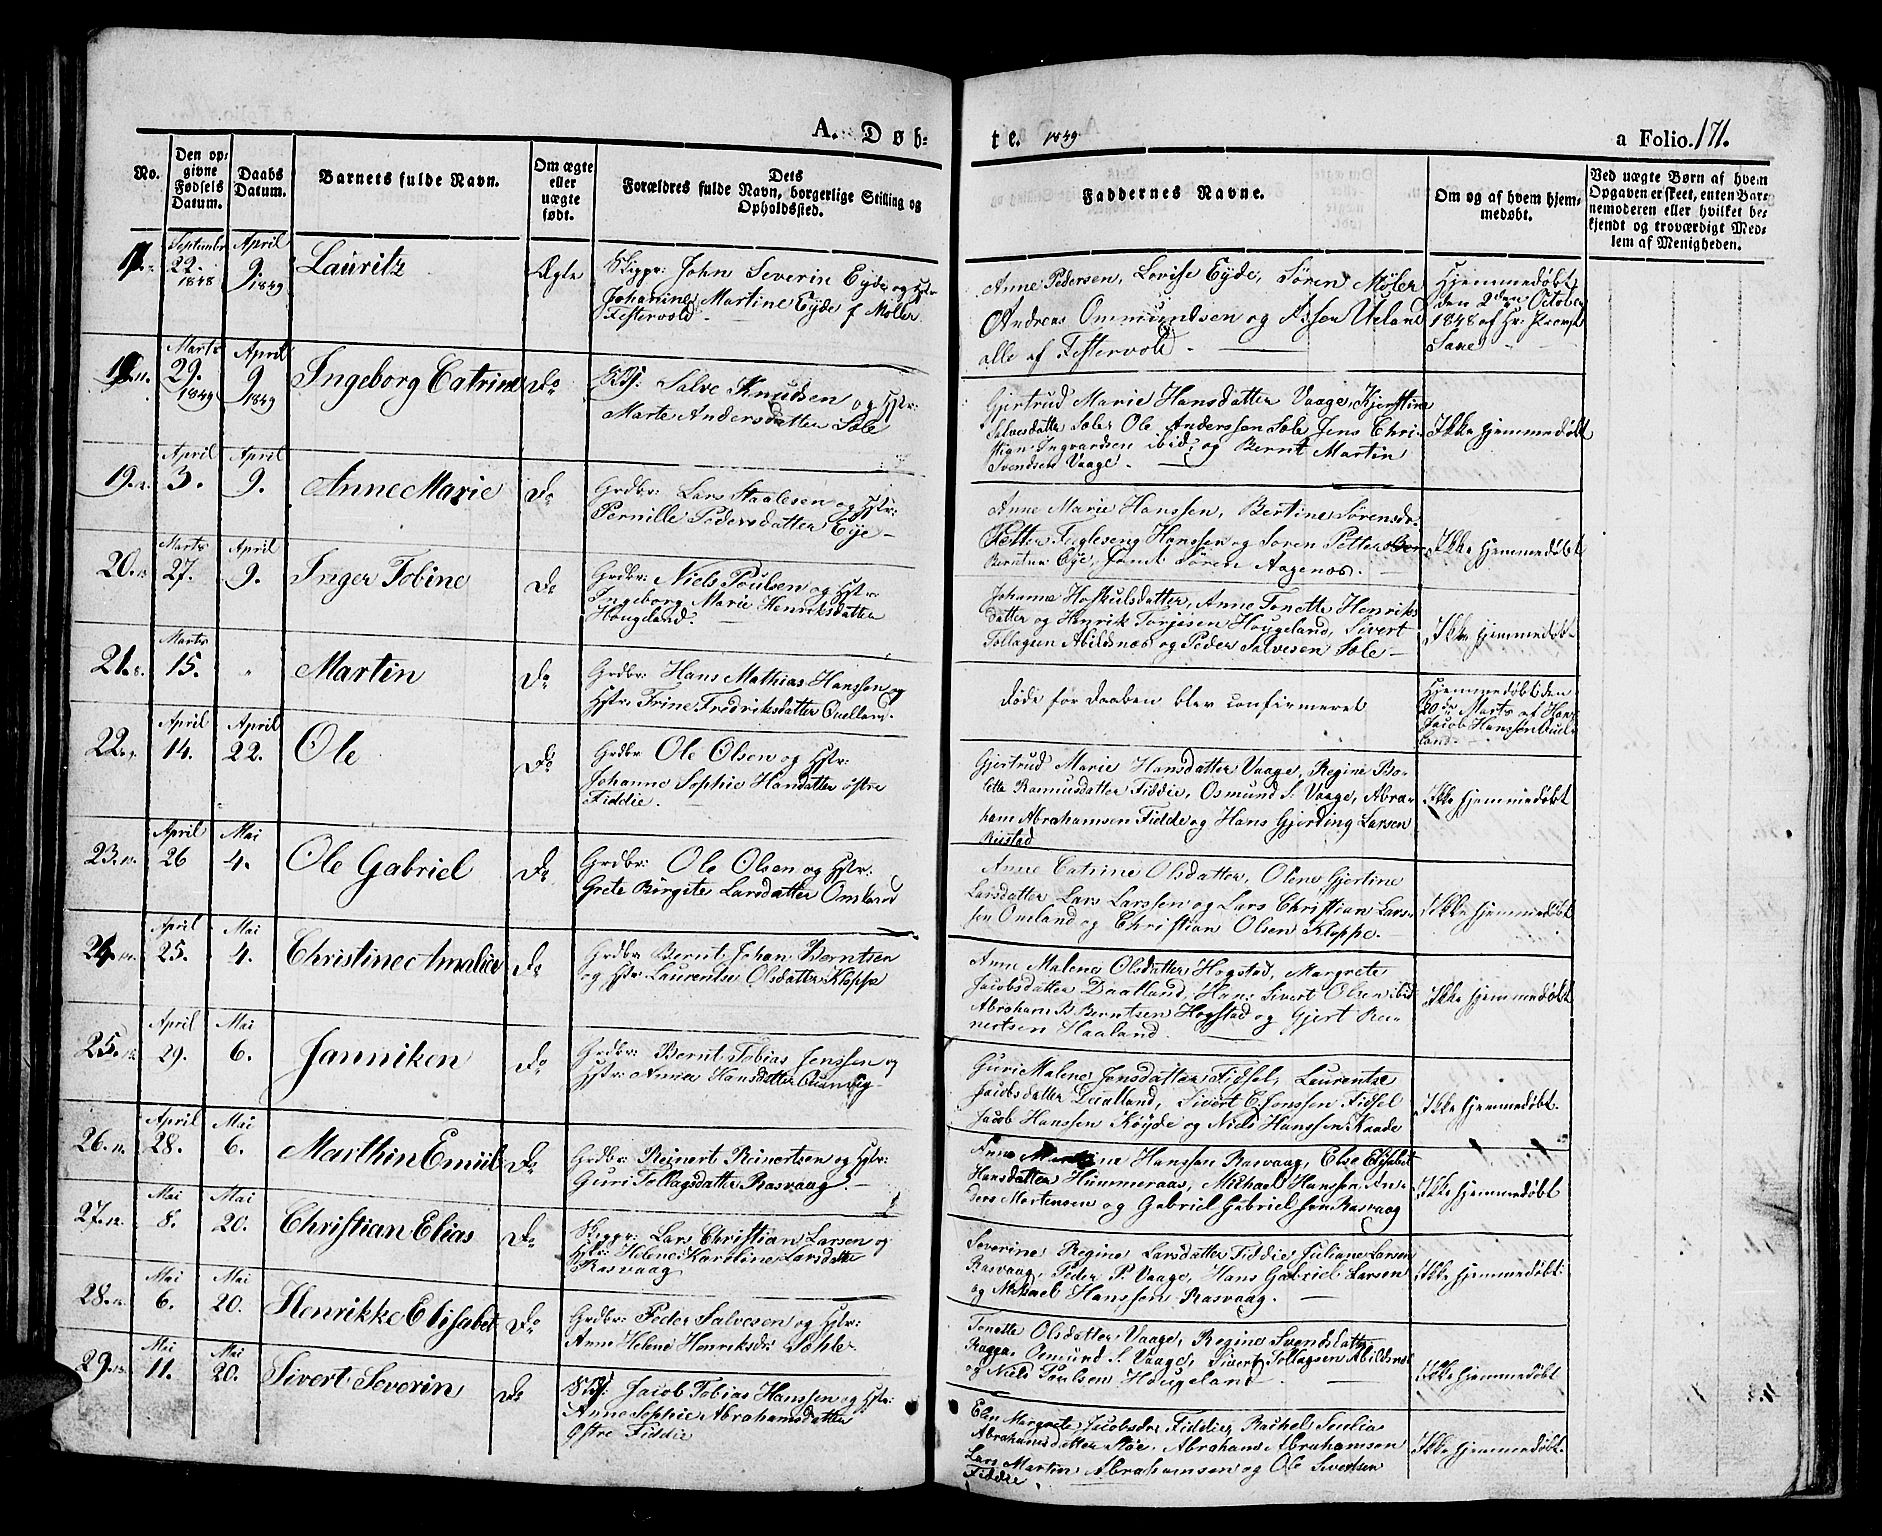 A. Døb-
te. 1849
a Folio. 171.
No.
Den op-
givne
Fødsels
Datum.
Daabs
Datum.
Barnets fulde Navn.
Om ægte
eller
uægte
født.
Dets
Forældres fulde Navn, borgerlige Stilling og
Opholdssted.
Faddernes Navne.
Om og af hvem hjem-
medøbt.
Ved uægte Børn af hvem
Opgaven er skeet, enten Bar-
nemoderen eller hvilket be-
kjendt og troværdigt Med-
lem af Menigheden.
Septembr
22.
1848
April
9.
1849
Lauritz
Ægte
Skippr: John Severin Eyde og Hstr
Johanine Martine Eyde f. Møler
Festervold.
Anne Pedersen, Lovise Eyde, Søren Møler
Andreas Ommundsen og Assen Ueland
alle af Festervold
Hjemmedøbt
den 2den October
1848 af Hr: Provst
Marts
29.
1849
April
9
1849
Ingeborg Catrine
Do
Salve Knudsen og Hstr:
Marte Andersdatter Sole
Gjertrud Marie Hansdatter Vaage, Kjerstine
Salvesdatter Soler Ole Anderssen Sole Jens Chri-
stian Ingvardsen ibid; og Bernt Martin
Svendsen Vaage.
Ikke hjemmedøbt
19.
April
3.
April
9.
Anne Marie
Do
Grdbr: Lars Staalesen og Hstr:
Pernille Pedersdatter Eye
Anne Marie Hanssen, Bertine Sørensdr
Petter Fugleseng Hanssen og Søren Petter
Berntsen Eye, samt Søren Aagenes.
Ikke hjemmedøbt
20.
Marts
27.
April
9.
Inger Tobine
Do
Grdbr: Niels Poulsen og Hstr:
Ingeborg Marie Henriksdatter
Hougeland.
Johanne Hofkulsdatter, Anne Tonette Henriks
datter og Henrik Torjesen Hougeland, Sivert
Tollagsen Abildsnes og Peder Salvesen Sole
Ikke hjemmedøbt
21.
Marts
15.
"
Martin
Do
Grdbr: Hans Mathias Hanssen og
Hstr: Trine Fredriksdatter Quelland.
døde før Daaben blev confirmeret
Hjemmedøbt den
20de Marts af Hans
Jacob Hanssen Quel-
land.
22.
April
14.
April
22.
Ole
Do
Grdbr Ole Olsen og Hstr:
Johanne Sophie Hansdatter østre
Fiddie.
Gjertrud Marie Hansdatter Vaage, Regine Bo-
lette Rasmusdatter Fiddie, Osmund S: Vaage, Abra-
ham Abrahamsen Fidde og Hans Gjerding Larsen
Rustad
Ikke hjemmedøbt
23.
April
26
Mai
4.
Ole Gabriel
Do
Grdbr: Ole Olsen og Hstr:
Grete Birgite Larsdatter Omland
Anne Catrine Olsdatter, Olene Gjertine
Larsdatter Lars Larssen og Lars Christian Lars-
sen Omland og Christian Olsen Kloppe.
Ikke hjemmedøbt
24.
April
25.
Mai
4.
Christine Amalie
Do
Grdbr Bernt Johan Berntsen
og Hstr: Laurentse Olsdatter Kloppe
Anne Malene Olsdatter Hogstad, Margrete
Jacobsdatter Daalland, Hans Sivert Olsen ibid
Abraham B. Berntsen Hogstad og Gjert Rei-
nertsen Haaland.
Ikke hjemmedøbt
25.
April
29.
Mai
6.
Janniken
Do
Grdbr: Bernt Tobias Jenssen og
Hstr: Anne Hansdatter Quanvig
Guri Malene Jensdatter Fidsel, Laurentse
Jacobsdatter Daalland, Sivert E. Jonssen Fidsel
Jacob Hanssen Køyde og Niels Hanssen Kaade
Ikke hjemmedøbt.
26.
April
28.
Mai
6.
Marthin Emiil
Do
Grdbr: Reinert Reinertsen og Hstr:
Guri Tollagsdatter Rasvaag.
Anne Hanssen Rasvaag, Else Elisabet
Hansdatter Hummeraas, Michael Hanssen, An-
ders Mortensen og Gabriel Gabrielsen Rasvaag
Ikke hjemmedøbt
27.
Mai
8.
Mai
20.
Christian Elias
Do
Skippr: Lars Christian Larsen og
Hstr: Helene Karoline Larsdatter
Rasvaag
Severine Regine Larsdatter Fiddie, Juliane Larsen
Rasvaag, Peder P. Vaage, Hans Gabriel Larsen
og Mikael Hanssen Rasvaag.
Ikke hjemmedøbt:
28.
Mai
6.
Mai
20.
Henrikke Elisabet
Do
Grdbr: Peder Salvesen og Hstr:
Anne Helene Henriksdr Sohle
Tonette Olsdatter Vaage, Regine Svendsdatter
Ragge, Osmund S. Vaage, Sivert Tollagsen Abildsnes
og Niels Poulsen Hougeland.
Ikke hjemmedøbt
29.
Mai
11.
Mai
20.
Sivert Severin
Do
Jacob Tobias Hanssen og Hstr:
Anne Sophie Abrahamsdatter
Østre Fiddie
Elen Margrete Jacobsdr Fiddie, Rachel Emilie
Abrahamsdatter Støe, Abraham Abrahamsen
Lars Martin Abrahamsen og Ole Sivertsen
Fiddie
Ikke hjemmedøbt.